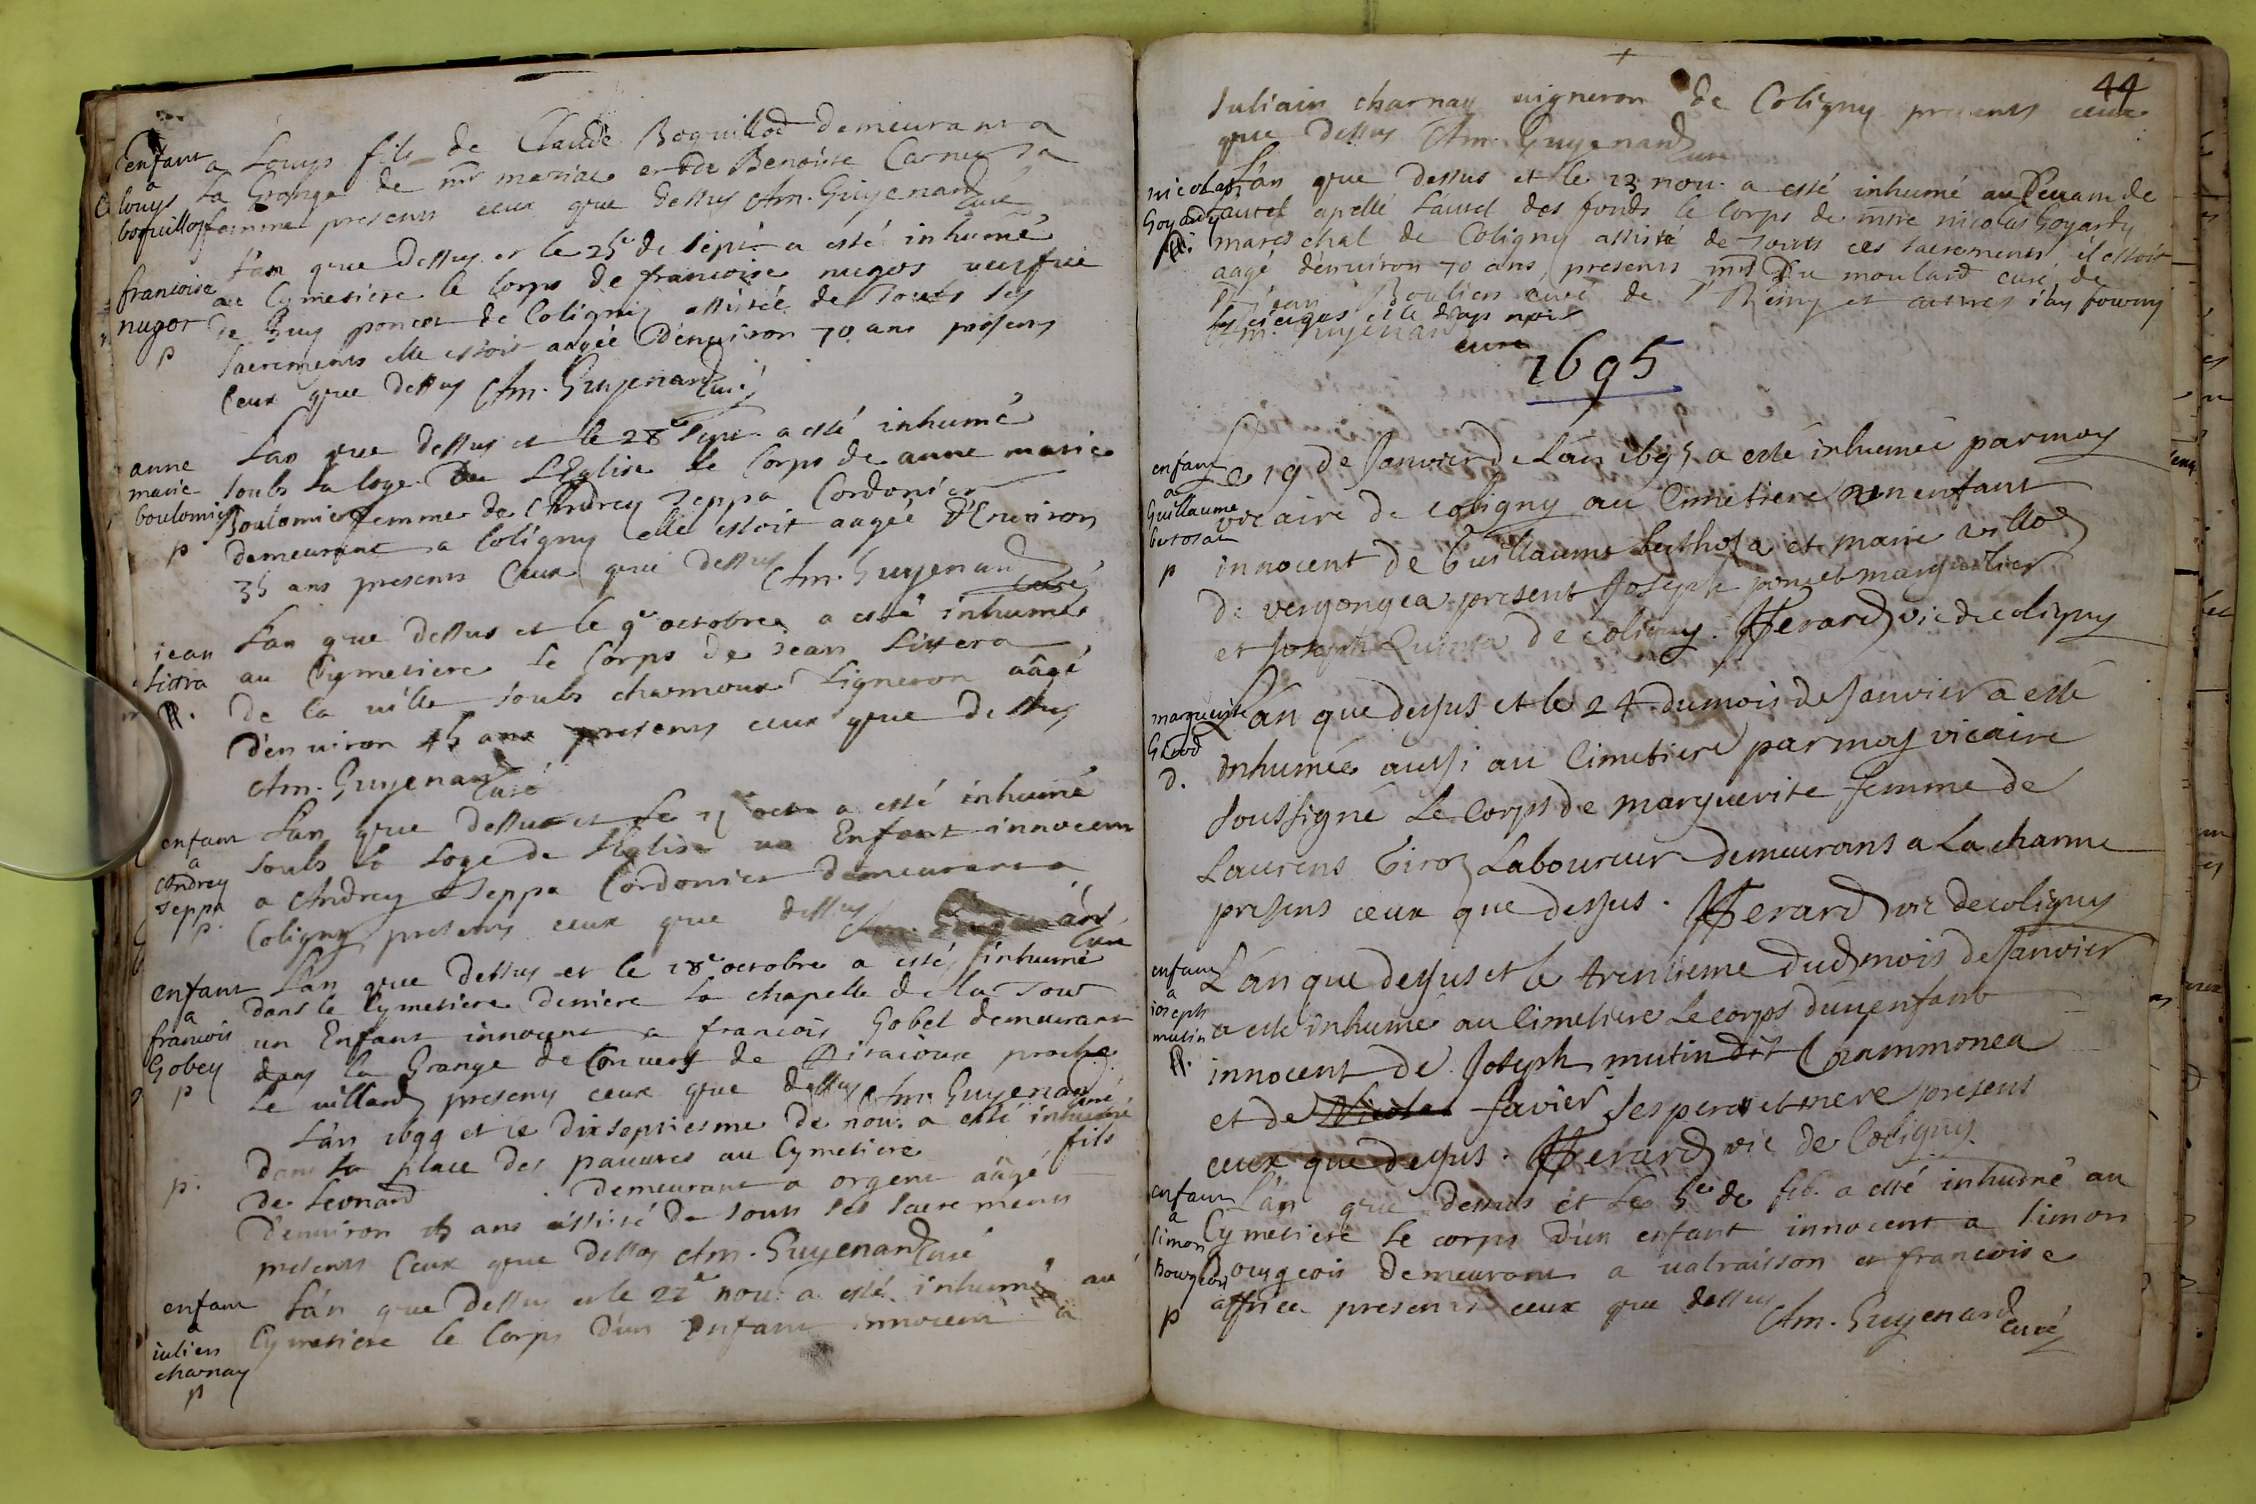 enfant
a
louys
boquillod
a Louys fils de Claude Boquillod demeurant a
la Grange de mr mariac et de Benoiste Carney sa
femme presents ceux que dessus Am. Guyenard curé
francoise
nugot
p
L'an que dessus et le 25e de sept. a esté inhumé
au Cymetiere le Corps de francoise nugot veufue
de Guy poncet de Coligny assistée de touts les
sacrements elle estoit aagée d'enuiron 70 ans presents
Ceux que dessus Am. Guyenard curé
anne
marie
boulomier
p
L'an que dessus et le 28e sept. a esté inhumé
soubs la loge de L'Eglise le Corps de anne marie
Boulomier femme de Andrey Seppa Cordonier
demeurant a Coligny elle estoit aagée d'Enuiron
35 ans presents Ceux que dessus Am. Guyenard
curé
jean
Littra
p.
L'an que dessus et le 9e octobre a esté inhumé
au Cymetiere le Corps de Jean Littera
de la ville soubs charmoux Vigneron aâgé
d'enuiron 45 ans presents ceux que dessus
Am. Guyenard curé
enfant
a
Andrey
seppa
p.
L'an que dessus et le 15 octo a esté inhumé
soubs la loge de l'Eglise un Enfant innocent
a Andrey Seppa Cordonier demeurant a
Coligny presents ceux que dessus Am. Guyenard
curé
enfant
a
francois
Gobey
p
L'an que dessus et le 18e octobre a esté inhumé
dans le Cymetiere derriere la chapelle de la Tour
un Enfant innocent a francois Gobet demeurant
dans la Grange de Conuers de proche
Le villard presents ceux que dessus Am. Guyenard
curé
p.
L'an 1694 et le dixseptiesme de nou. a esté inhumé
dans la place des pauures au Cymetiere fils
de Leonard demeurant a orgent aâgé
d'enuiron 15 ans assisté de touts les sacrements
presents Ceux que dessus Am. Guyenard curé
enfant
a
iulien
charnay
p
L'an que dessus et le 22e nou. a esté inhumé au
Cymetiere le Corps d'un Enfant innocent a
44
Juliain charnay vigneron de Coligny presents ceux
que dessus Am. Guyenard curé
nicolas
Goyardy
L'an que dessus et le 23 nou. a esté inhumé au deuant de
l'autel apellé l'autel des fonds le Corps de mre nicolas Goyardy
mareschal de Coligny assisté de touts ces sacrements il estoit
aagé d'enuiron 70 ans, presents mrs Du moulard curé de
St jean Boulier curé de St Remy et autres i'ay fourny
les cierges et le drap noir
Am. Guyenard curé
1695
enfant
a
Guillaume
bertosat
p
Le 19 de Janvier de L'an 1695 a esté inhumée par moy
vicaire de coligny au Cimetiere un enfant
innocent de Guillaume berthoza et marie villod
de vergongea present Joseph poncet marguillier
et Joseph Quinsa de coligny. JFerard vic de coligny
marguerite
Girod
d.
L'an que dessus et le 24 du mois de Janvier a esté
inhumée aussi au Cimetiere par moy vicaire
soussigné Le Corps de marguerite femme de
Laurens Girod Laboureur demeurans a La charme
presens ceux que dessus. JFerard vic de coligny
enfant
a
ioseph
mutin
p.
L'an que dessus et le trentieme dud mois de Janvier
a esté inhumé au Cimetiere Le corps d'un enfant
innocent de Joseph mutin dit Grammonea
et de Nicolas favier ses pere et mere presens
ceux que dessus. JFerard vic de Coligny
enfant
a
simon
bourgeois
p
L'an que dessus et Le 5e de feb. a esté inhumé au
Cymetiere le corps d'un enfant innocent a simon
Bourgeois demeurant a ualraisson et francoise
affrice presents ceux que dessus Am. Guyenard
curé